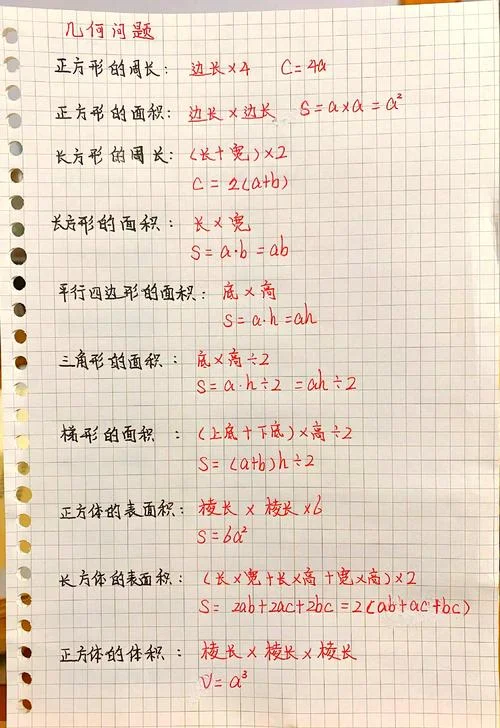 几何问题
正方形的周长: 边长×4 C=4a
正方形的面积: 边长×边长 S=a×a=a²
长方形的周长: (长+宽)×2
C=2(a+b)
长方形的面积: 长×宽
S=a·b=ab
平行四边形的面积: 底×高
S=a·h=ah
三角形的面积: 底×高÷2
S=a·h÷2=ah÷2
梯形的面积: (上底+下底)×高÷2
S=(a+b)h÷2
正方体的表面积: 棱长×棱长×6
S=6a²
长方体的表面积: (长×宽+长×高+宽×高)×2
S=2ab+2ac+2bc=2(ab+ac+bc)
正方体的体积: 棱长×棱长×棱长
V=a³